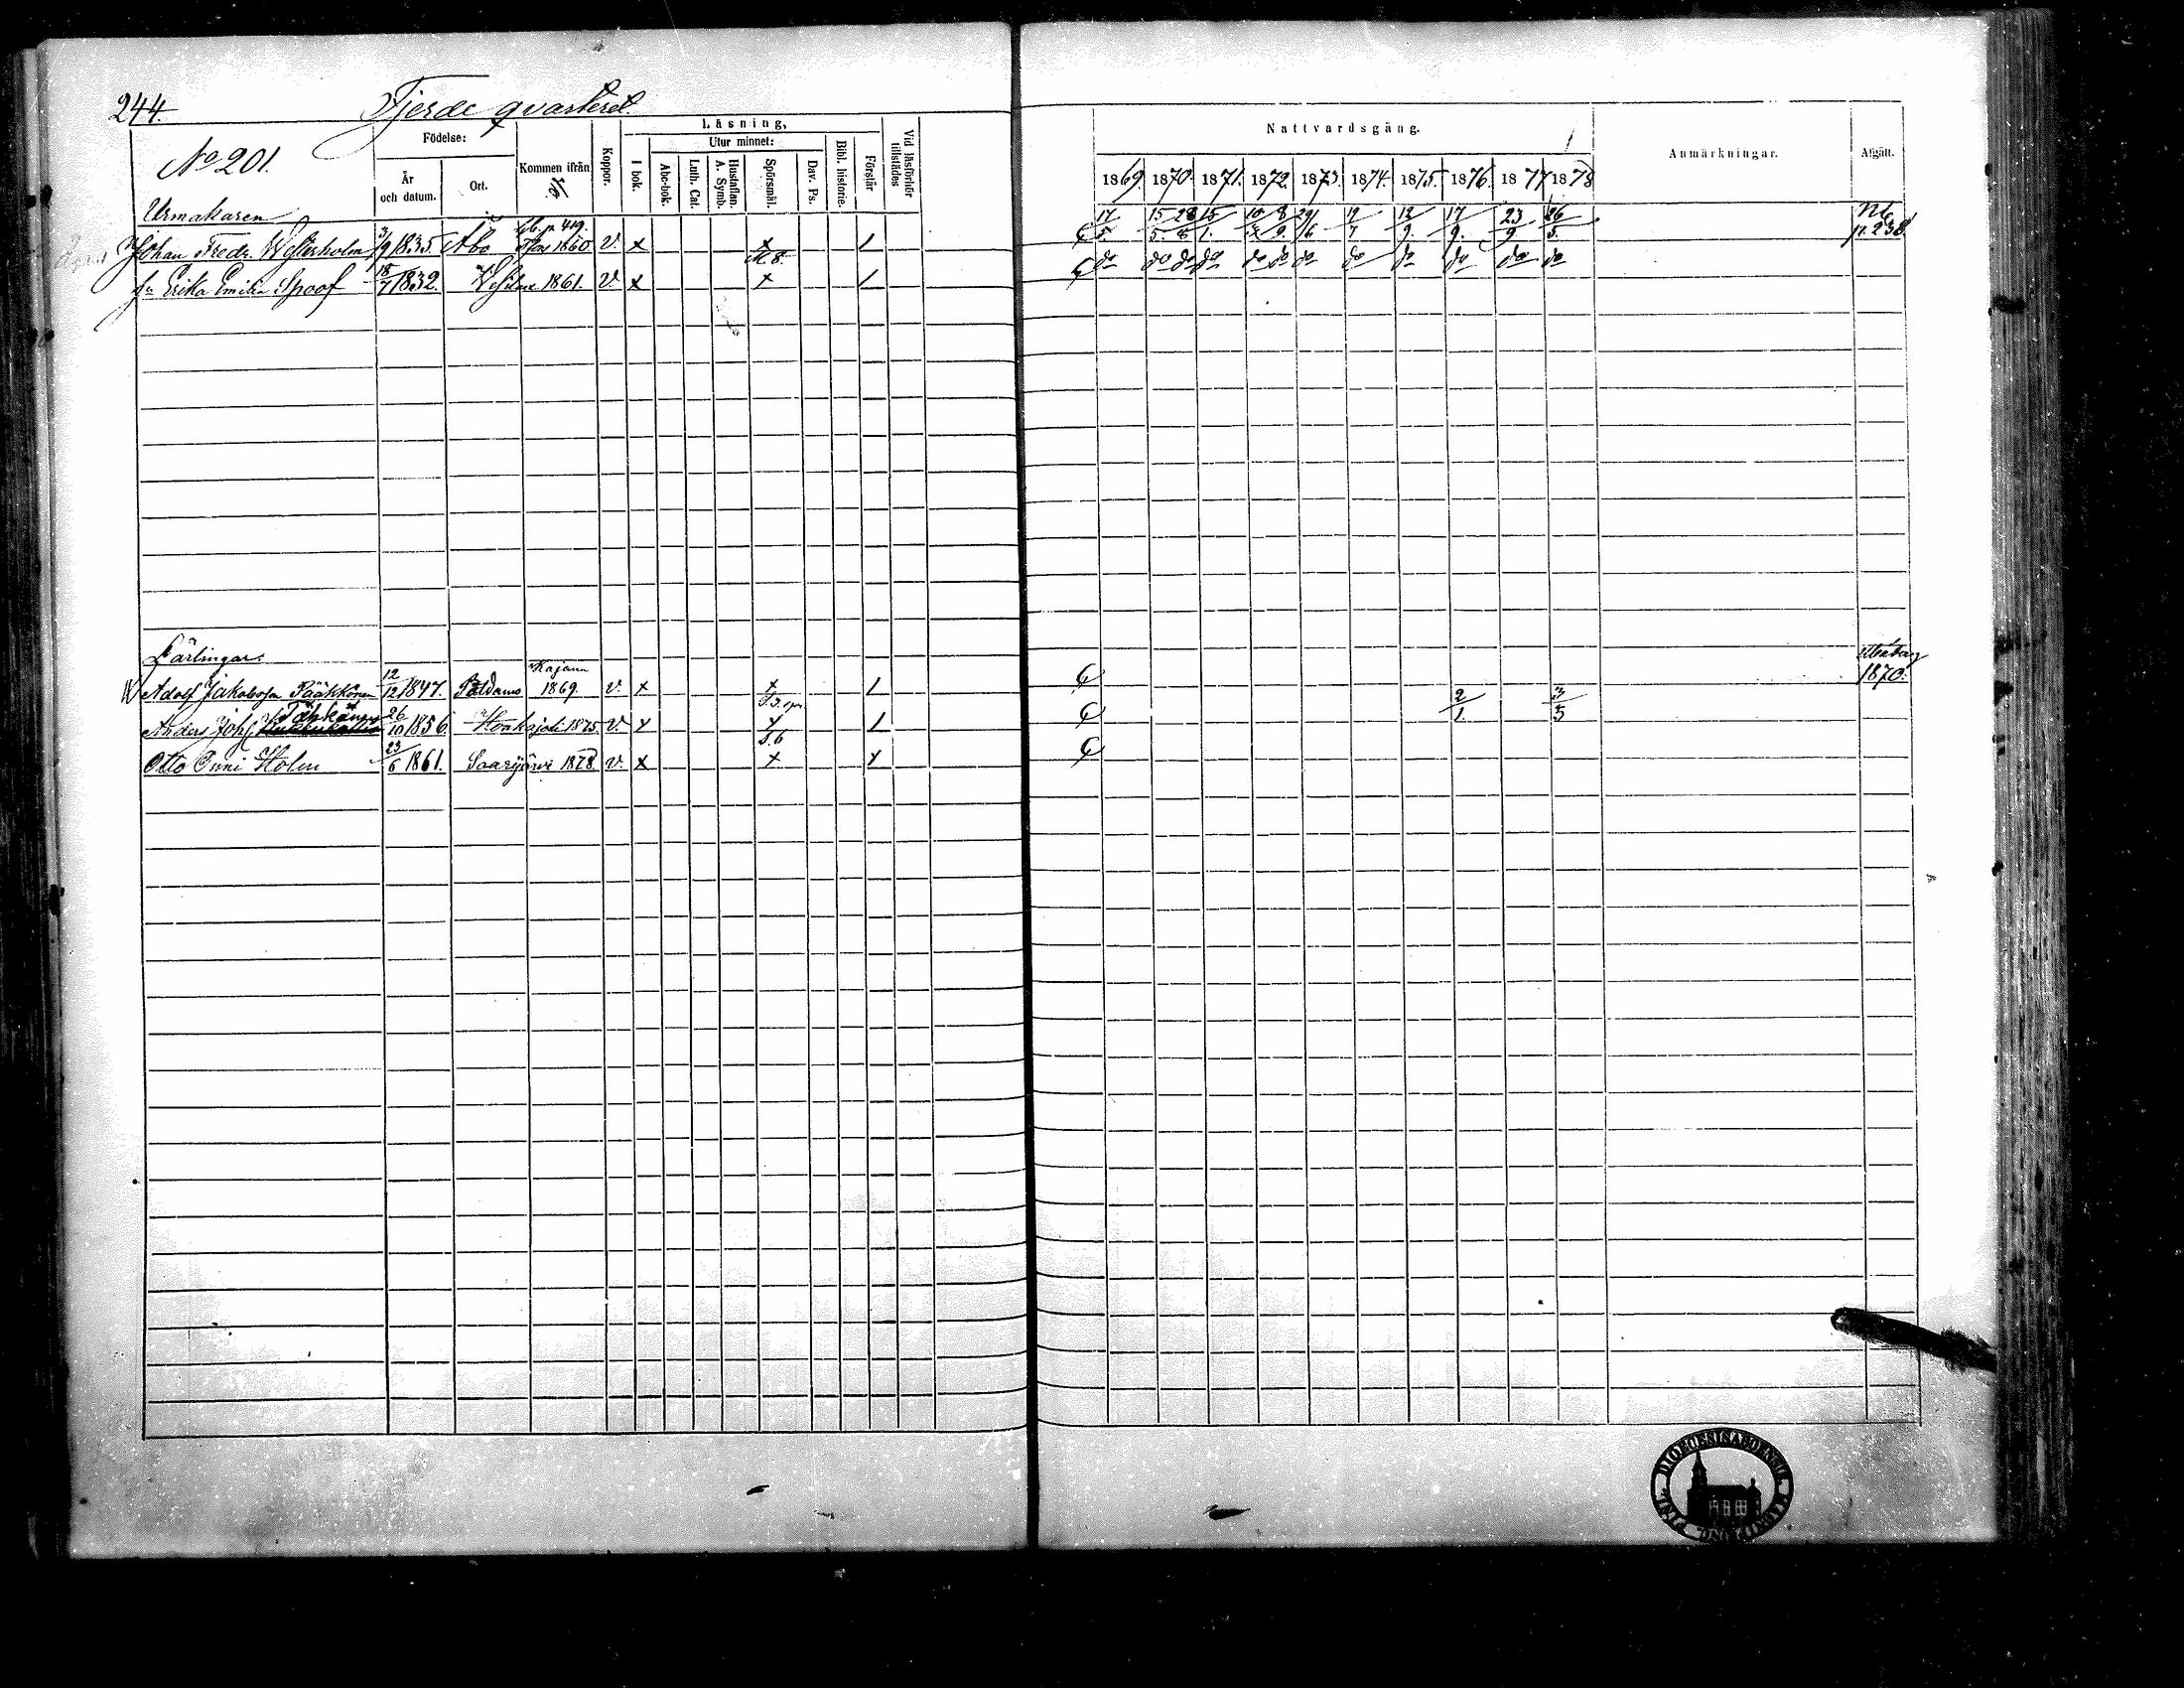 244. Fjerde qvarteret.
No 201.
Födelse:
År och datum.
Ort.
Kommen ifrån
Koppor.
Läsning,
I bok.
Utur minnet:
Abc-bok.
Luth. Cat.
Hustaflan. A. Symb.
Spörsmål.
Dav. Ps.
Bibl. historie.
Förstår
Vid läsförhör tillstädes
Nattvardsgång.
1869. 1870. 1871. 1872. 1873. 1874. 1875. 1876. 1877 1878
Anmärkningar.
Afgått.
Urmakaren
Johan Fredr. Westerholm 3/9 1835. Åbo 1860. v. x x 1 17/5. 15/5. 28/8 15/1. 10/3 8/9. 29/6 19/7 12/9. 17/9. 23/9 26/5. p. 238
M 8.
hu Erika Emilia Spoof 18/7 1832. 1861. v. x x 1 do do do do do do do do do do do do
Lärlingar.
Adolf Jakobsson Pääkkönen 12/12 1847. Paldamo Kajana 1869. v. x x 1 1870.
Anders Joh. 26/10 1856. Honkajoki 1875. v. x x 1 2/1. 3/5
S. 6
Otto Onni Holm 23/6 1861. Saarijärvi 1878. v. x x x
DIOECESIS ABOENSIS